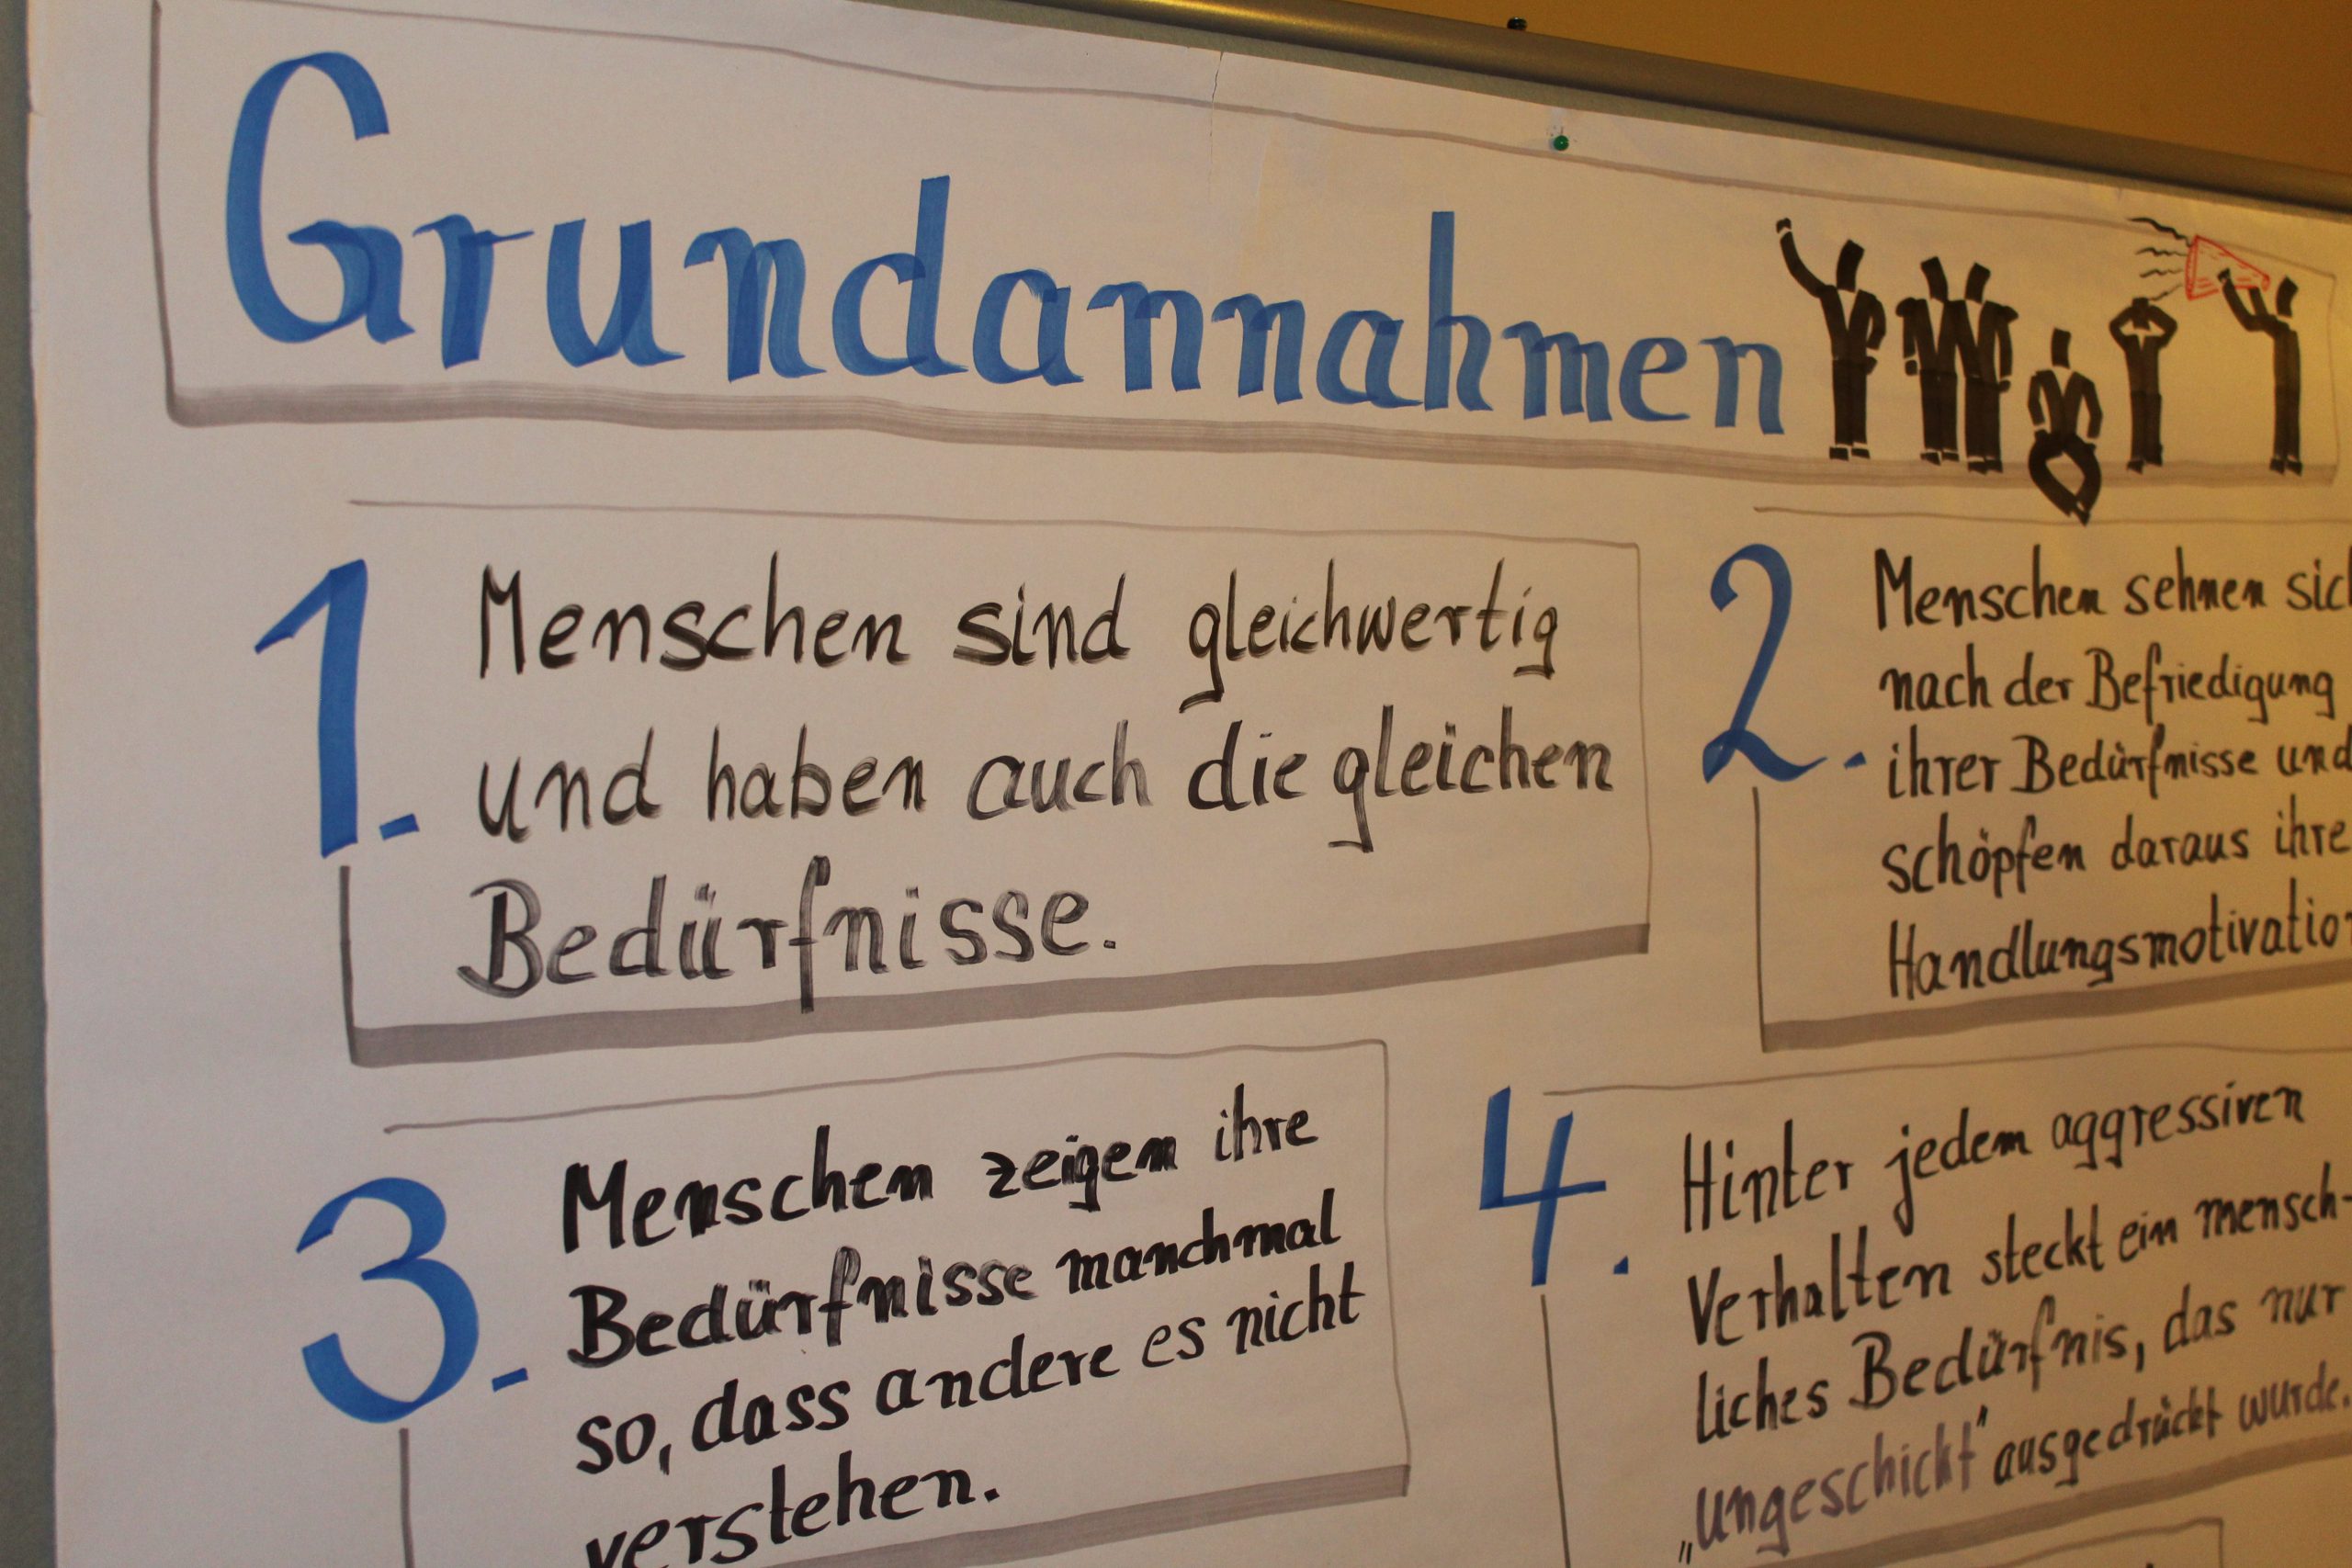 Grundannahmen
1. Menschen sind gleichwertig
und haben auch die gleichen
Bedürfnisse.
2. Menschen sehnen sich
nach der Befriedigung
ihrer Bedürfnisse und
schöpfen daraus ihre
Handlungsmotivation
3. Menschen zeigen ihre
Bedürfnisse manchmal
so, dass andere es nicht
verstehen.
4. Hinter jedem aggressiven
Verhalten steckt ein mensch-
liches Bedürfnis, das nur
„ungeschickt" ausgedrückt wurde.